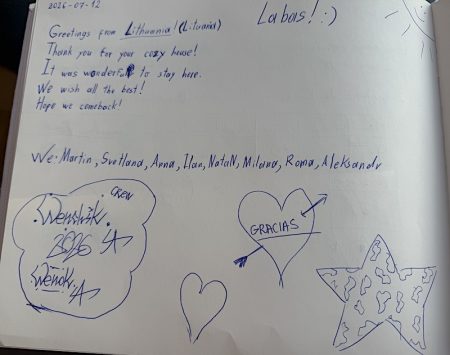 2026-07-12
Labas! :)
Greetings from Lithuania! (Lituania)
Thank you for your cozy house!
It was wonderful to stay here.
We wish all the best!
Hope we comeback!
We: Martin, Svetlana, Anna, Ilan, NataN, Milana, Roma, Aleksandr
CREW
2026
GRACIAS